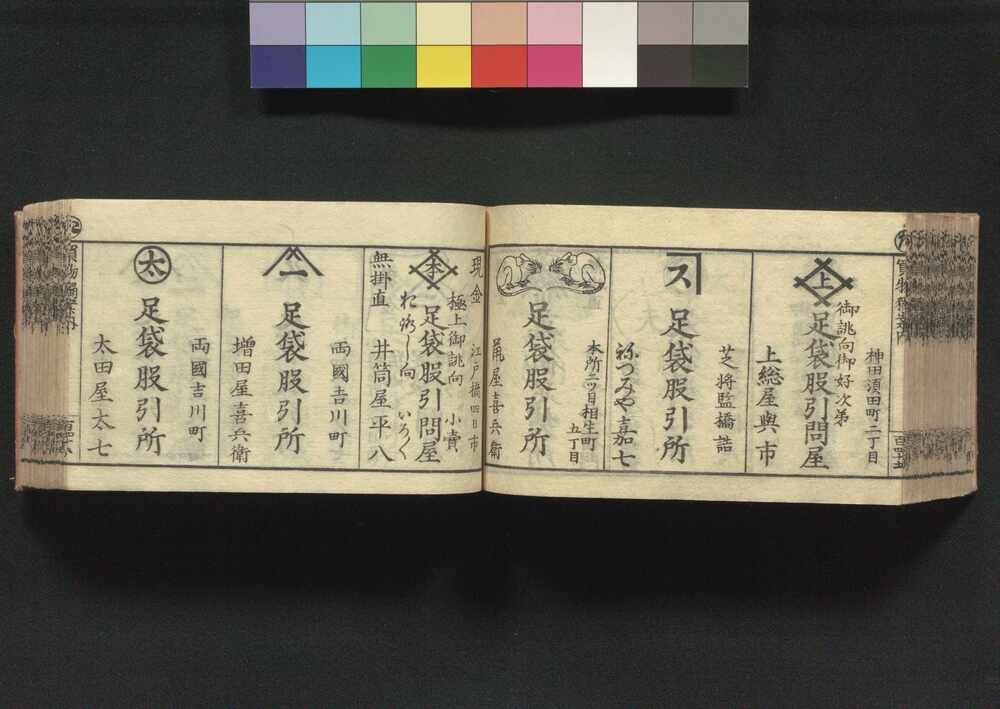 神田須田町二丁目
御誂向御好次第
上
足袋股引問屋
上総屋與市
芝将監橋詰
ス
足袋股引所
祢つみや嘉七
本所二ッ目相生町
五丁目
足袋股引所
屋喜兵衛
現金
江戸橋四日市
極上御誂向
小賣
足袋股引問屋
いろ〱
井筒屋平八
無掛直
両國吉川町
一
足袋股引所
増田屋喜兵衛
両國吉川町
太
足袋股引所
太田屋太七